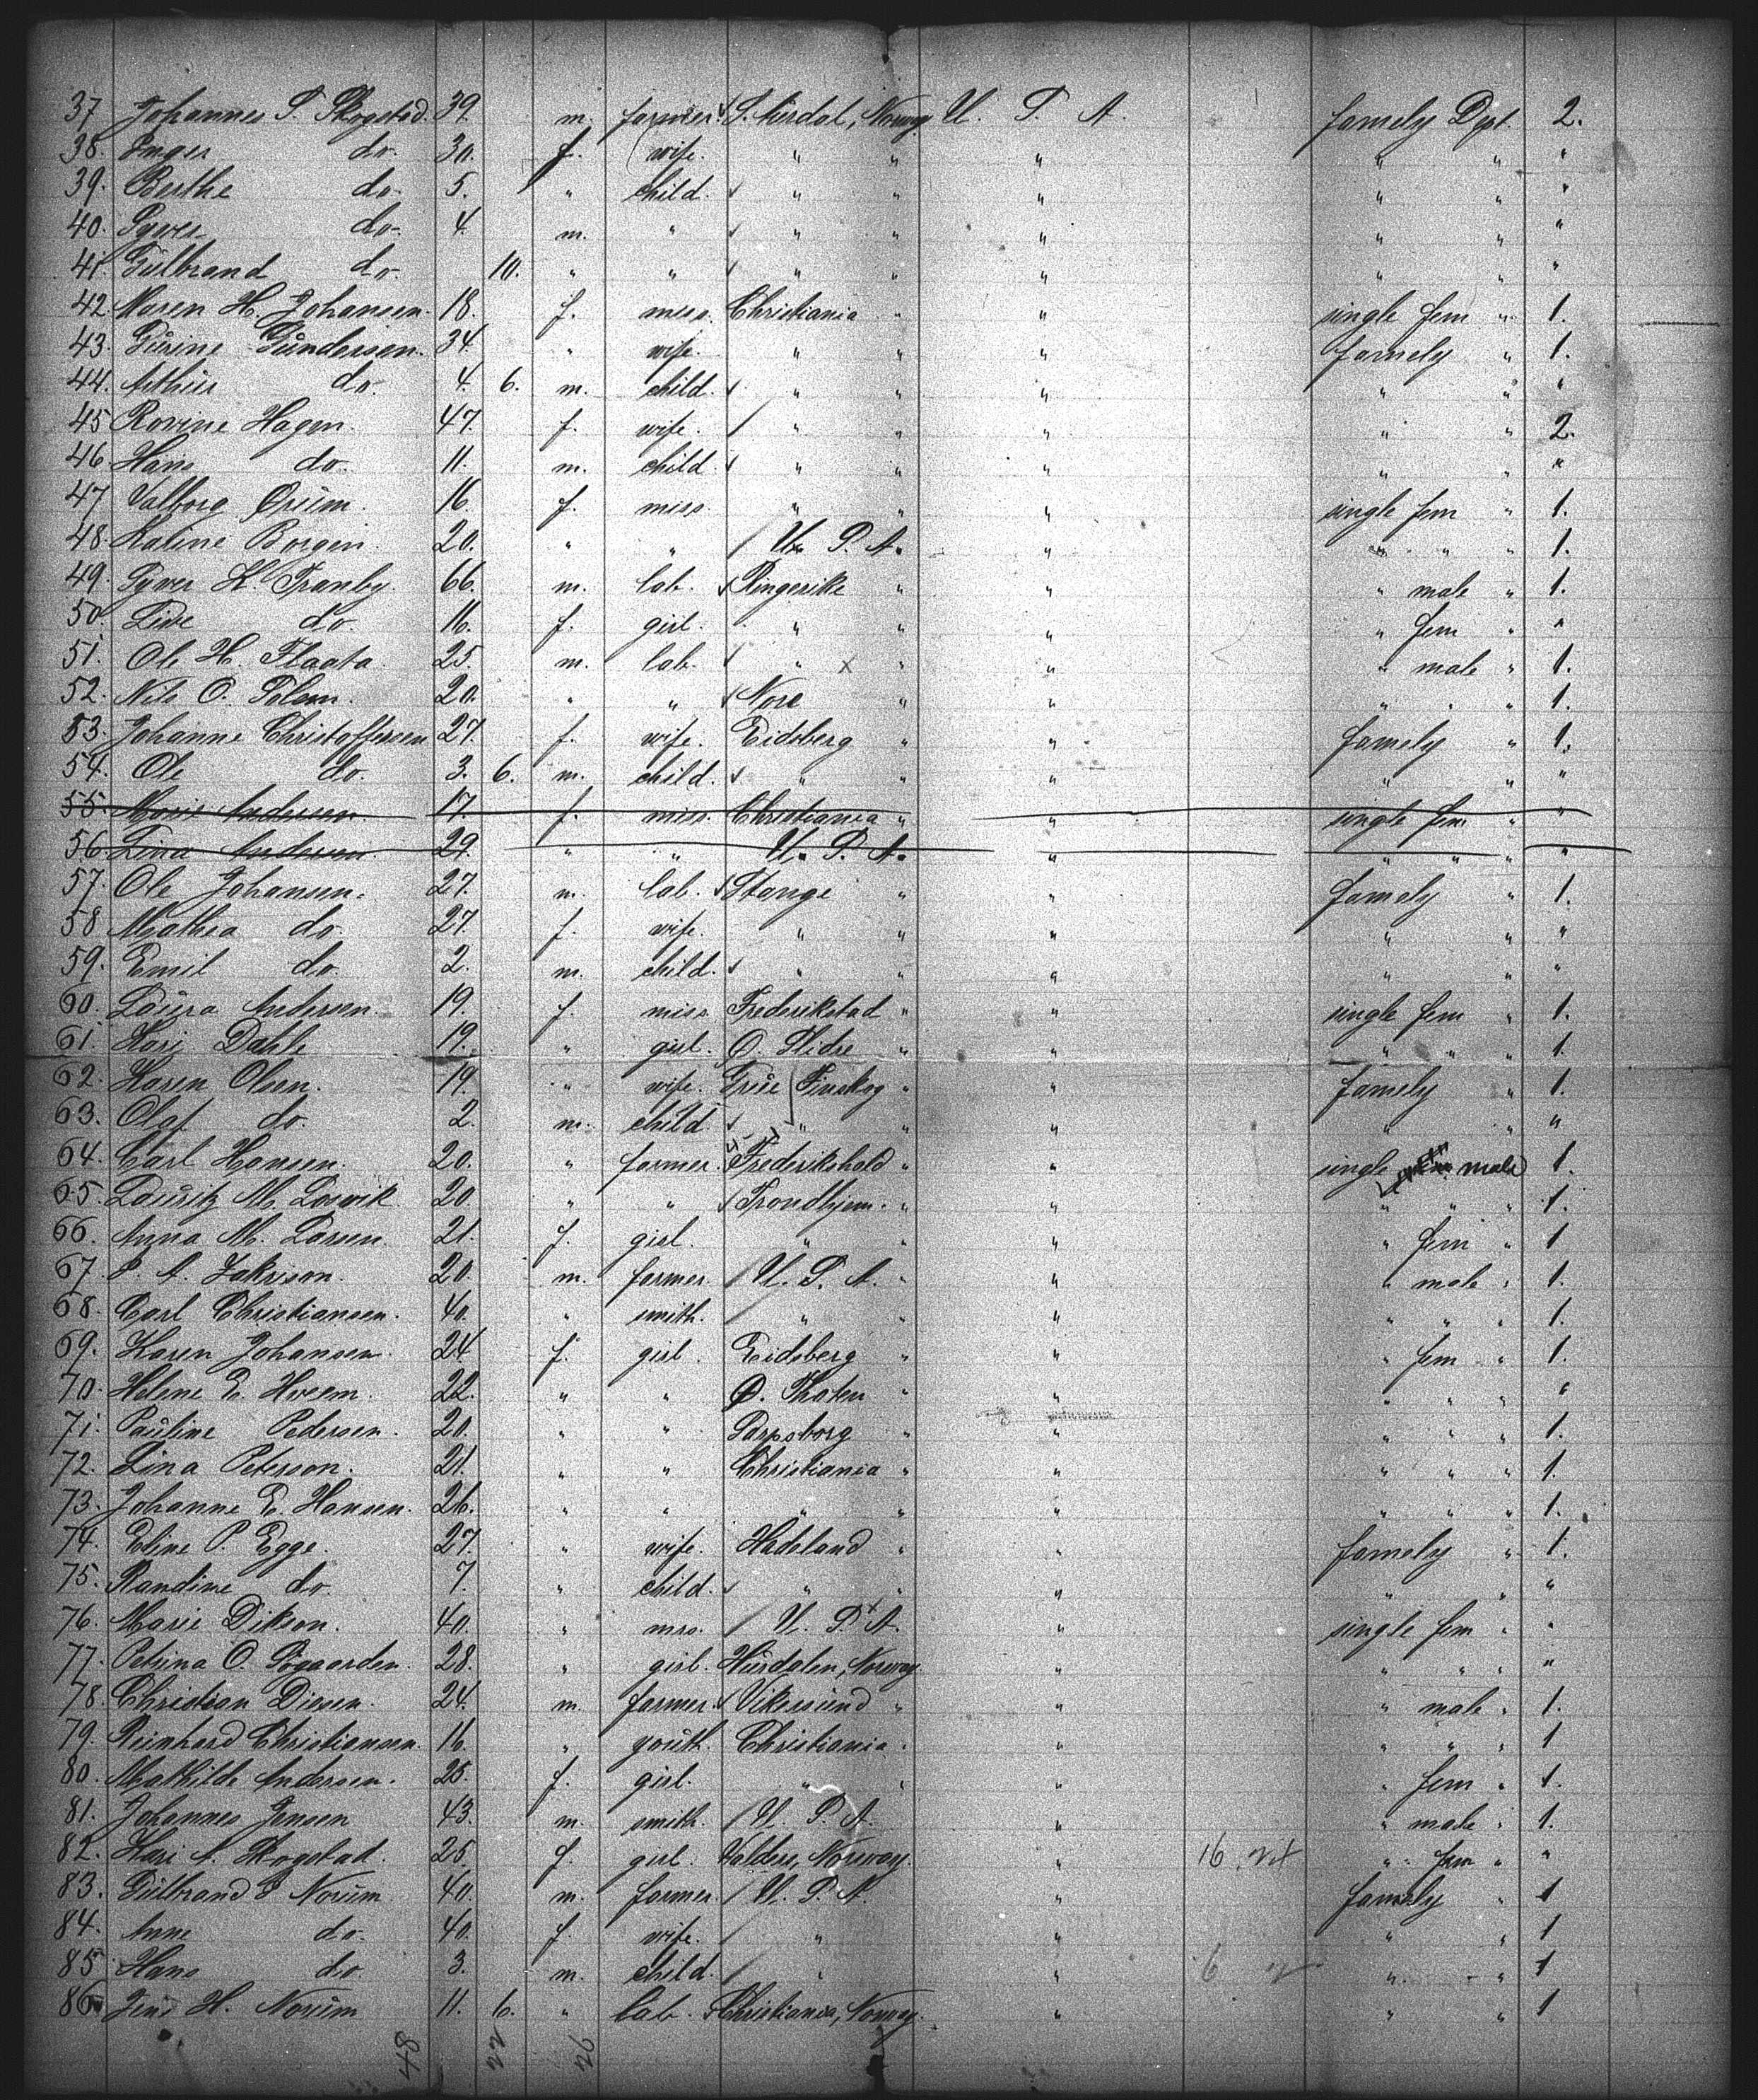 37 Johannes S. Skogstad. 39. m. farmer. S. Aurdal, Norway U. S. A. famely Dpt. 2.
38. Inger do. 30. f. wife. " " " " " "
39. Berthe do. 5. " child. " " " " " "
40. Syver do. 4. m. " " " " " " "
41. Gulbrand do. 10. " " " " " " " "
42. Maren H. Johansen. 18. f. miss. Christiania " " single fem " 1.
43. Gurine Gundersen. 34. " wife. " " " famely " 1.
44. Arthur do. 4. 6. m. child. " " " " " "
45 Rovine Hagen. 47. f. wife. " " " " " 2.
46. Hans do. 11. m. child. " " " " " "
47 Valborg Orum. 16. f. miss " " " single fem " 1.
48. Kaline Borgen. 20. " " U. S. A. " " " " 1.
49. Syver K. Tranby. 66. m. lab. Ringerike " " " male " 1.
50. Live do. 16. f. girl. " " " " fem " "
51. Ole H. Flaata. 25. m. lab. " x " " " male " 1.
52. Nils O. 20. " " Nore " " " " " 1.
53. Johanne Christoffersen 27. f. wife. Eidsberg " " famely " 1.
54. Ole do. 3. 6. m. child. " " " " " "
55. Marie Andersen. 17. f. miss. Christiania " " single fem " "
56 Lina Andersen. 29. " " U. S. A. " " " " "
57. Ole Johansen. 27. m. lab. Stange " " famely " 1.
58 Mathea do. 27. f. wife. " " " " " "
59. Emil do. 2. m. child. " " " " " "
60. Laura Andersen. 19. f. miss Frederikstad " " single fem " 1.
61. Kari Dahle 19. " girl. O. Slidre " " " " " 1.
62. Karen Olsen. 19. " wife. Grue Finskog " " famely " 1.
63. Olaf do. 2. m. child. " " " " " "
64. Carl Hansen. 20. " farmer. Frederikshald " " single male 1.
65. Lauritz M. 20 " " Trondhjem. " " " " " 1.
66. Anna M. Larsen. 21. f. girl. " " " " fem " 1
67. P. A. 20. m. farmer U. S. A. " " " male " 1.
68. Carl Christiansen. 40. " smith. " " " " " " 1.
69. Karen Johansen. 24 f. girl. Eidsberg " " " fem " 1.
70. Helene E. Hveem. 22. " " O. Thoten " " " " " "
71. Pauline Pedersen. 20. " " Sarpsborg " " " " " 1.
72. Lina Peterson. 21. " " Christiania " " " " " 1.
73. Johanne E. Hansen. 26. " " " " " " " " 1.
74. Eline P. Egge. 27. " wife. Hadeland " " famely " 1.
75. Randine do. 7. " child. " " " " " "
76. Marie Dikson. 40. " mrs. U. S. A. " single fem " "
77. Petrina O. 28. " girl. Hurdalen, Norway. " " " " "
78. Christian Diesen. 24. m. farmer. Vikersund " " " male " 1.
79. Reinhard Christiansen. 16. " youth. Christiania " " " " " 1
80. Mathilde Andersen. 25. f. girl. " " " " fem " 1.
81. Johannes Jensen 43. m. smith. U. S. A. " " male " 1.
82. Kari A. Skogstad. 25. f. girl. Valders, Norway. " 16 " fem " "
83. Gulbrand Norum 40. m. farmer. U. S. A. " famely " 1
84. Anne do. 40. f. wife. " " " " 1
85 Hans do. 3. m. child. " " 6 " " 1
86 H. Norum 11. 6. " lab. Christiania, Norway. " " " 1